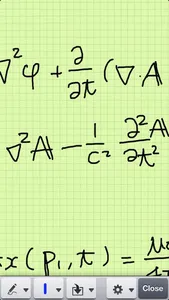 ∇²φ + ∂/∂t (∇·A
∇²A − 1/C² ∂²A/∂t²
x(P₁, t) = μ
Close